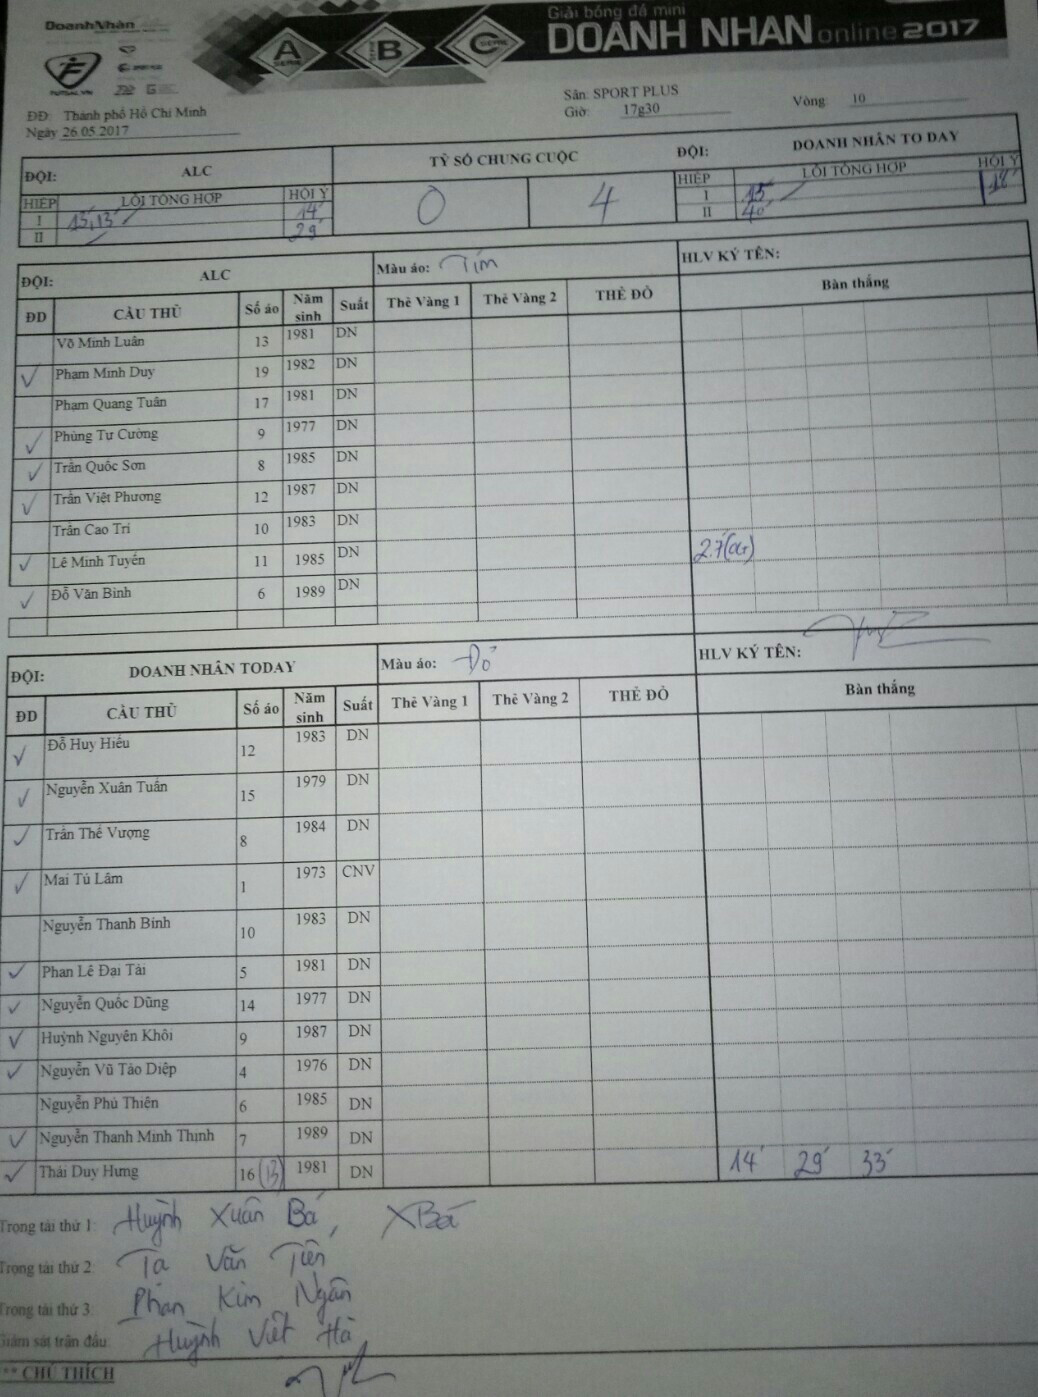 DoanhNhân
FUTSAL.VN
A SERIE B SERIE C SERIE
Giải bóng đá mini
DOANH NHAN online 2017
ĐĐ: Thành phố Hồ Chí Minh
Ngày 26.05.2017
Sân: SPORT PLUS
Giờ: 17g30
Vòng 10
ĐỘI: ALC TỶ SỐ CHUNG CUỘC ĐỘI: DOANH NHÂN TO DAY
HIỆP LỖI TỔNG HỢP HỘI Ý 0 4 HIỆP LỖI TỔNG HỢP HỘI Ý
I 13', 13' 14' I 15' 18'
II 29' II 40'
ĐỘI: ALC Màu áo: Tím HLV KÝ TÊN:
ĐD CẦU THỦ Số áo Năm sinh Suất Thẻ Vàng 1 Thẻ Vàng 2 THẺ ĐỎ Bàn thắng
Võ Minh Luân 13 1981 DN
✓ Phạm Minh Duy 19 1982 DN
Phạm Quang Tuân 17 1981 DN
✓ Phùng Tư Cường 9 1977 DN
✓ Trần Quốc Sơn 8 1985 DN
✓ Trần Việt Phương 12 1987 DN
Trần Cao Trí 10 1983 DN
✓ Lê Minh Tuyến 11 1985 DN 27'(OG)
✓ Đỗ Văn Bình 6 1989 DN
ĐỘI: DOANH NHÂN TODAY Màu áo: Đỏ HLV KÝ TÊN:
ĐD CẦU THỦ Số áo Năm sinh Suất Thẻ Vàng 1 Thẻ Vàng 2 THẺ ĐỎ Bàn thắng
✓ Đỗ Huy Hiếu 12 1983 DN
✓ Nguyễn Xuân Tuấn 15 1979 DN
✓ Trần Thế Vượng 8 1984 DN
✓ Mai Tú Lâm 1 1973 CNV
Nguyễn Thanh Bình 10 1983 DN
✓ Phan Lê Đại Tài 5 1981 DN
✓ Nguyễn Quốc Dũng 14 1977 DN
✓ Huỳnh Nguyên Khôi 9 1987 DN
✓ Nguyễn Vũ Tảo Diệp 4 1976 DN
Nguyễn Phú Thiên 6 1985 DN
✓ Nguyễn Thanh Minh Thịnh 7 1989 DN
✓ Thái Duy Hưng 16 (13) 1981 DN 14' 29' 33'
Trọng tài thứ 1: Huỳnh Xuân Bá, XBá
Trọng tài thứ 2: Tạ Văn Tiên
Trọng tài thứ 3: Phan Kim Ngân
Giám sát trận đấu: Huỳnh Viết Hà
** CHÚ THÍCH